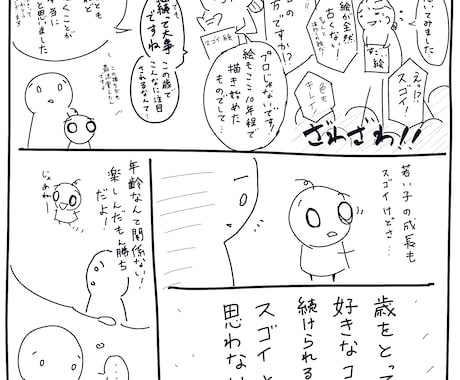 思ってみました
絵が全然
古くない!
すごい絵
えっ!?
スゴイ
色も
キレイ!
ざわざわ!!
スゴイ絵
プロの
方ですか!?
プロじゃないです!
絵もここ10年程で
描き始めた
ものでして…
継続って大事
ですね
この歳で
こんなに注目
されるなんて…
くことが
と思いました
若い子の成長も
スゴイけどさ…
歳をとって
好きなコ
続けられる
スゴイと
思わない
年齢なんて関係ない!
楽しんだもん勝ち
だよ!
じゃあねー